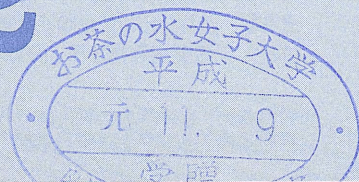 お茶の水女子大学
平成
元 11. 9